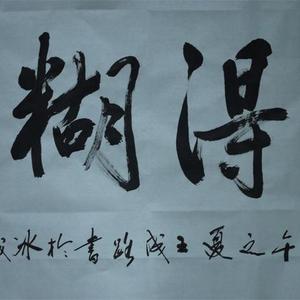 得糊
午之夏王成路書於冰